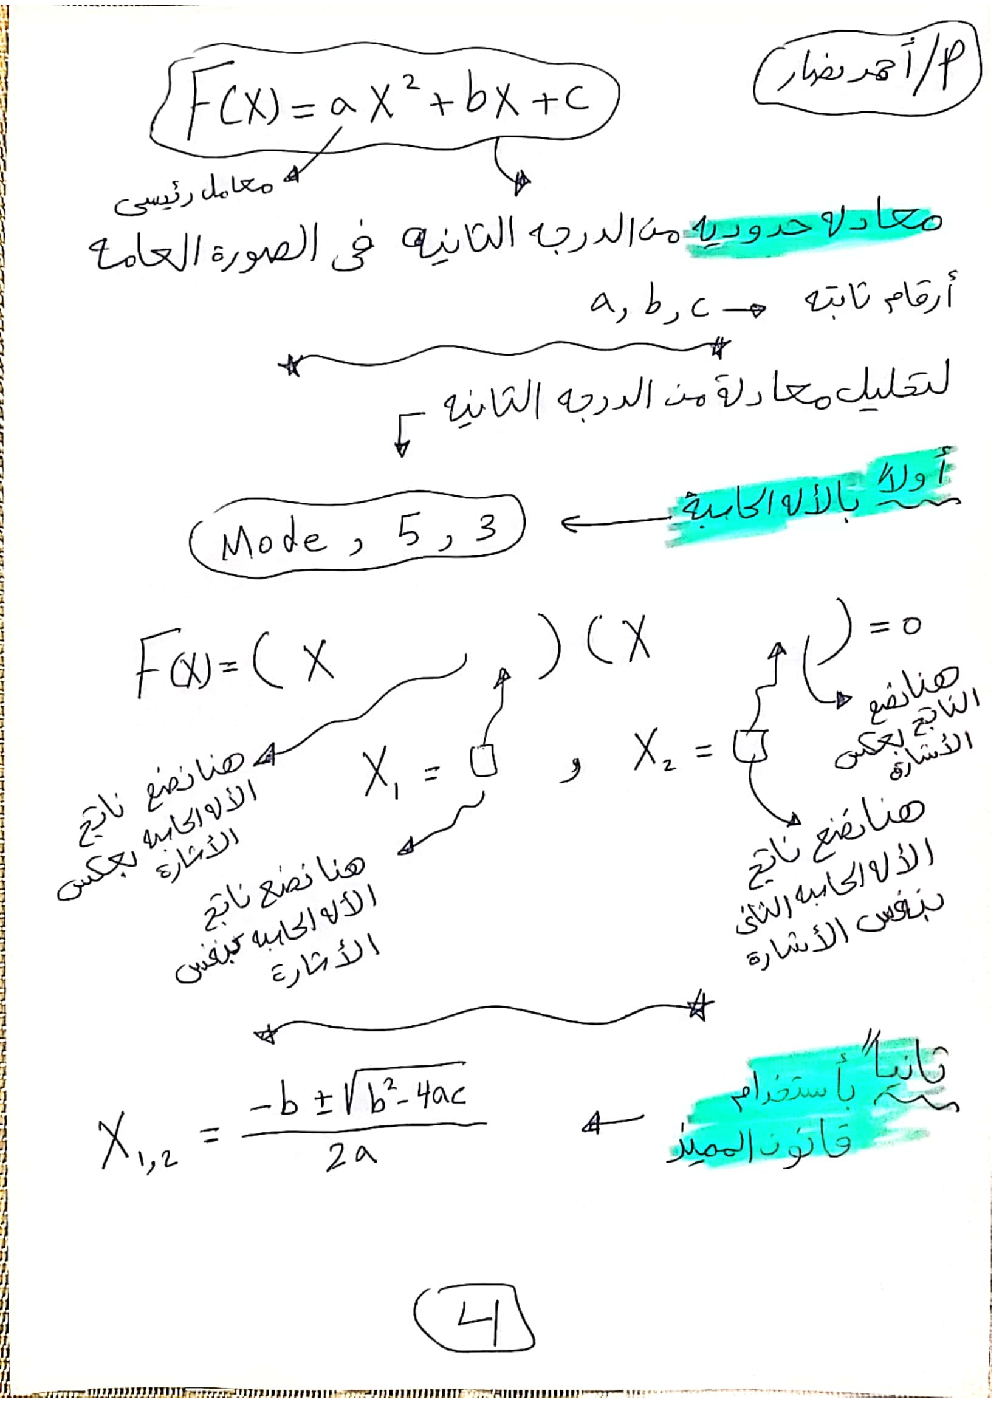 م/أحمد نصار
F(X) = aX² + bX + C
معامل رئيسى
معادلة حدودية من الدرجه الثانيه فى الصورة العامه
أرقام ثابته → a, b, c
لتحليل معادلة من الدرجه الثانيه
أولاً بالأله الحاسبة
Mode , 5 , 3
F(X) = ( X ) ( X ) = 0
هنا نضع
الناتج بعكس
الأشارة
X₁ = □ و X₂ = □
هنا نضع ناتج
الأله الحاسبه بعكس
الأشارة
هنا نضع ناتج
الأله الحاسبه بنفس
الأشارة
هنا نضع ناتج
الأله الحاسبه الثانى
بنفس الأشارة
ثانياً بأستخدام
قانون المميز
X₁,₂ = (-b ± √(b² - 4ac)) / 2a
4